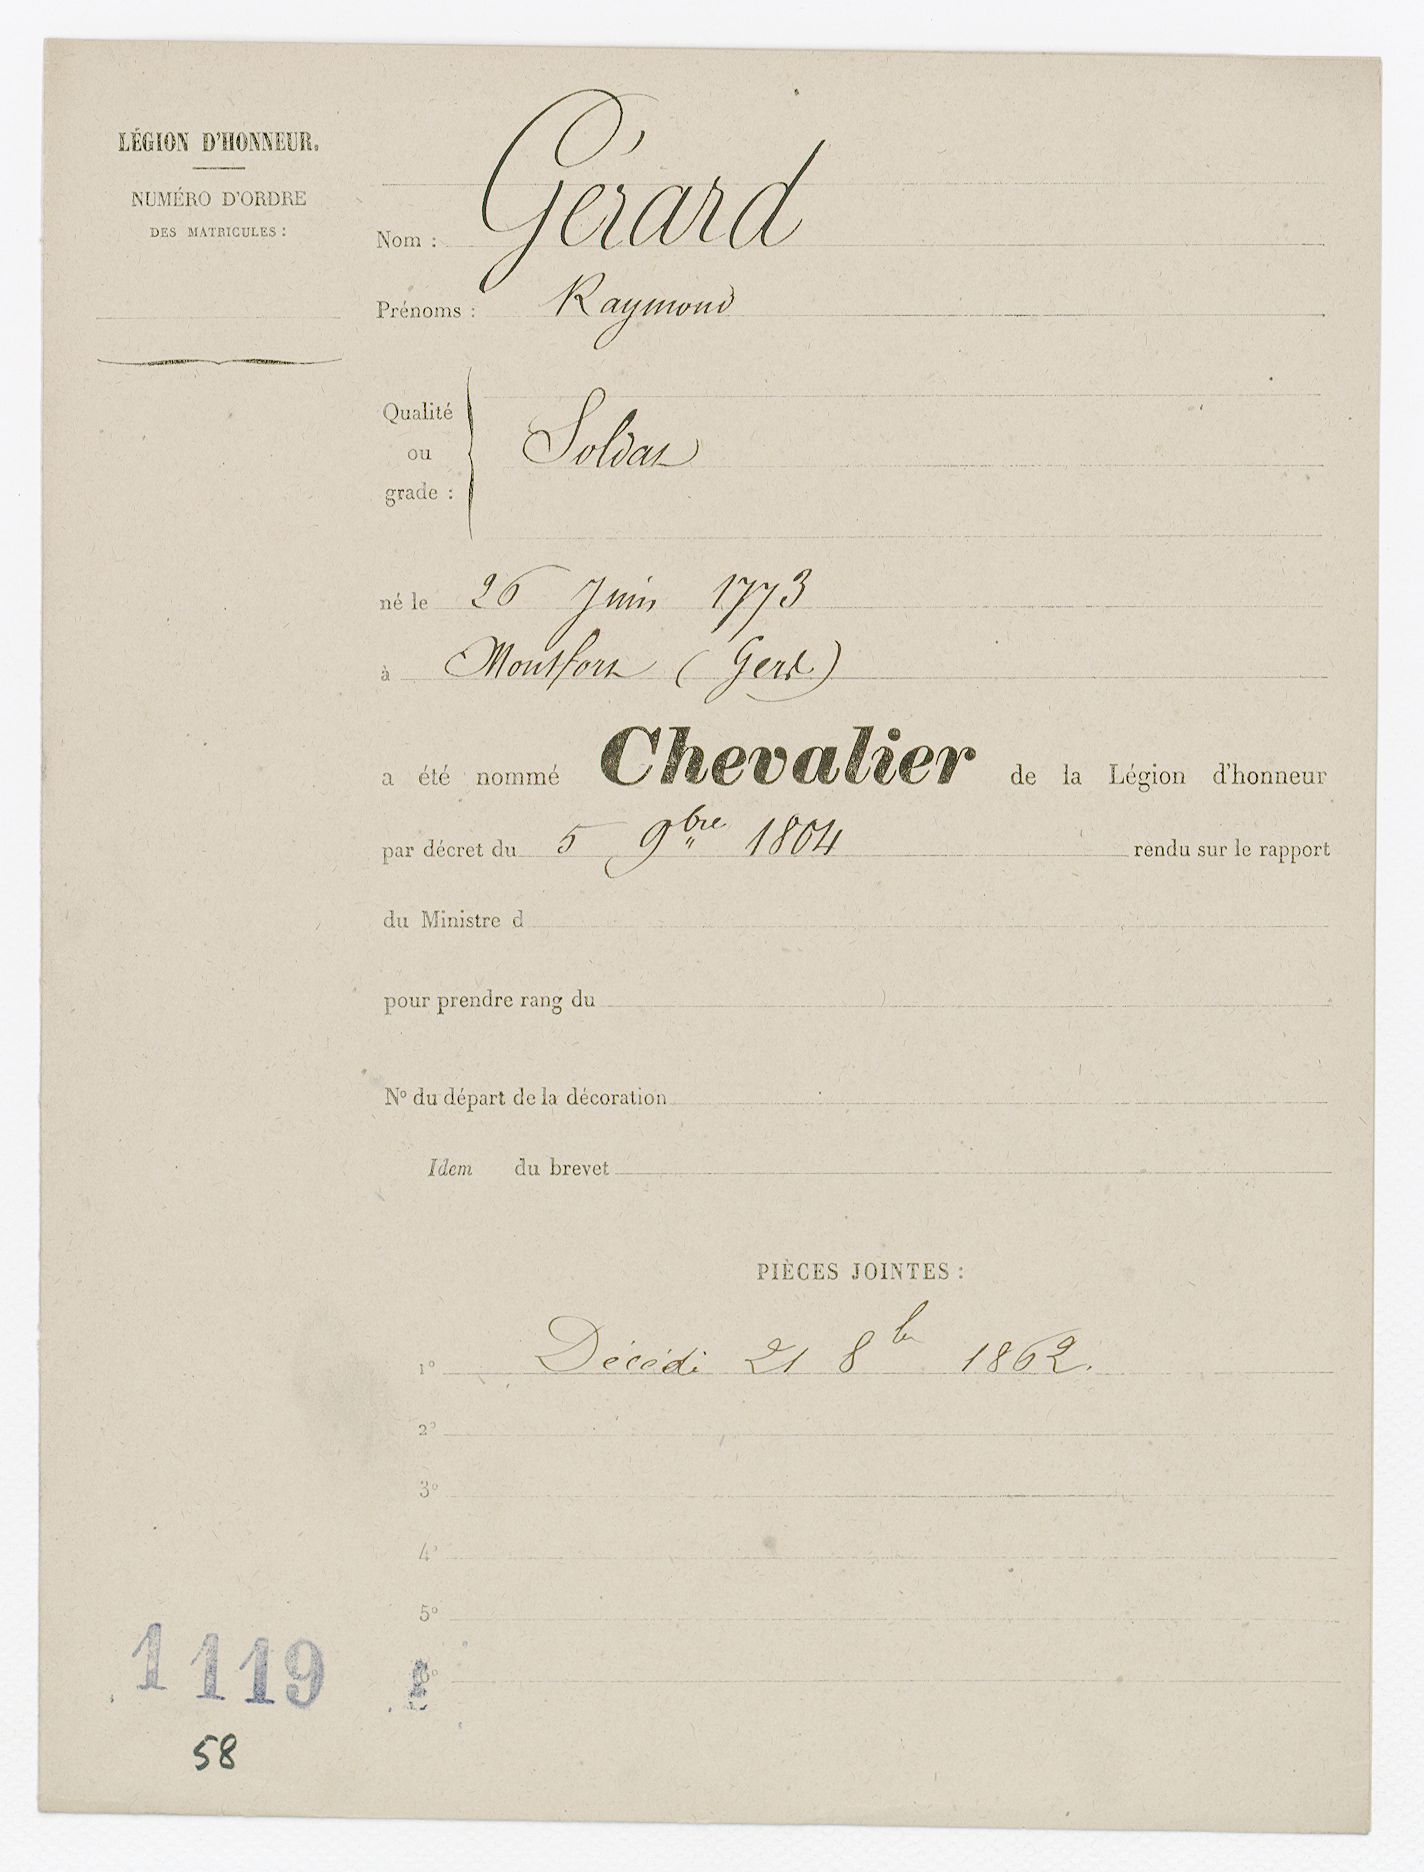 LÉGION D'HONNEUR.
NUMÉRO D'ORDRE
DES MATRICULES :
Nom : Gérard
Prénoms : Raymond
Qualité
ou
grade :
Soldat
né le 26 Juin 1773
à Montfort (Gers)
a été nommé Chevalier de la Légion d'honneur
par décret du 5 9bre 1804 rendu sur le rapport
du Ministre d
pour prendre rang du
No du départ de la décoration
Idem du brevet
PIÈCES JOINTES :
1° Décédé 21 8bre 1862.
2°
3°
4°
5°
6°
1119
58